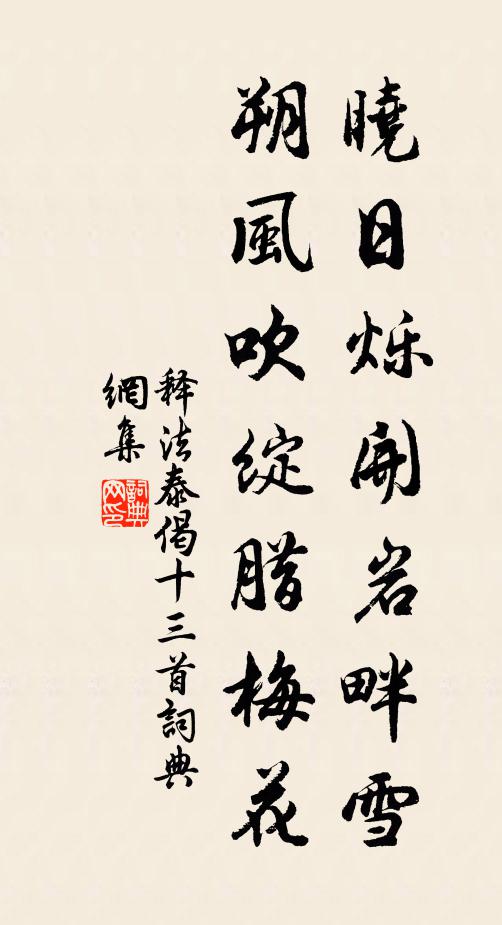 曉日烁開岩畔雪
朔風吹綻腊梅花
释法泰偈十三首詞典
網集
詞典網印